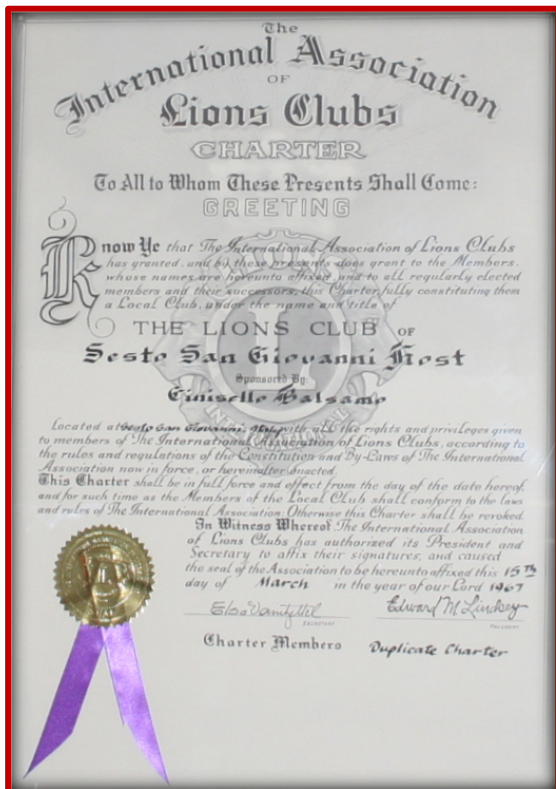 The
International Association
OF
Lions Clubs
CHARTER
To All to Whom These Presents Shall Come:
GREETING
Know Ye that The International Association of Lions Clubs
has granted, and by these presents does grant to the Members,
whose names are hereunto affixed, and to all regularly elected
members and their successors, this Charter, fully constituting them
a Local Club, under the name and title of
THE LIONS CLUB OF
Sesto San Giovanni Host
Sponsored By:
Cinisello Balsamo
Located at Sesto San Giovanni, Italy with all the rights and privileges given
to members of The International Association of Lions Clubs, according to
the rules and regulations of the Constitution and By-Laws of The International
Association now in force, or hereinafter enacted.
This Charter shall be in full force and effect from the day of the date hereof,
and for such time as the Members of the Local Club shall conform to the laws
and rules of The International Association: Otherwise this Charter shall be revoked.
In Witness Whereof The International Association
of Lions Clubs has authorized its President and
Secretary to affix their signatures, and caused
the seal of the Association to be hereunto affixed this 15TH
day of March in the year of our Lord 1967
Edward M. Lindsey
SECRETARY
PRESIDENT
Charter Members
Duplicate Charter
L
INTERNATIONAL